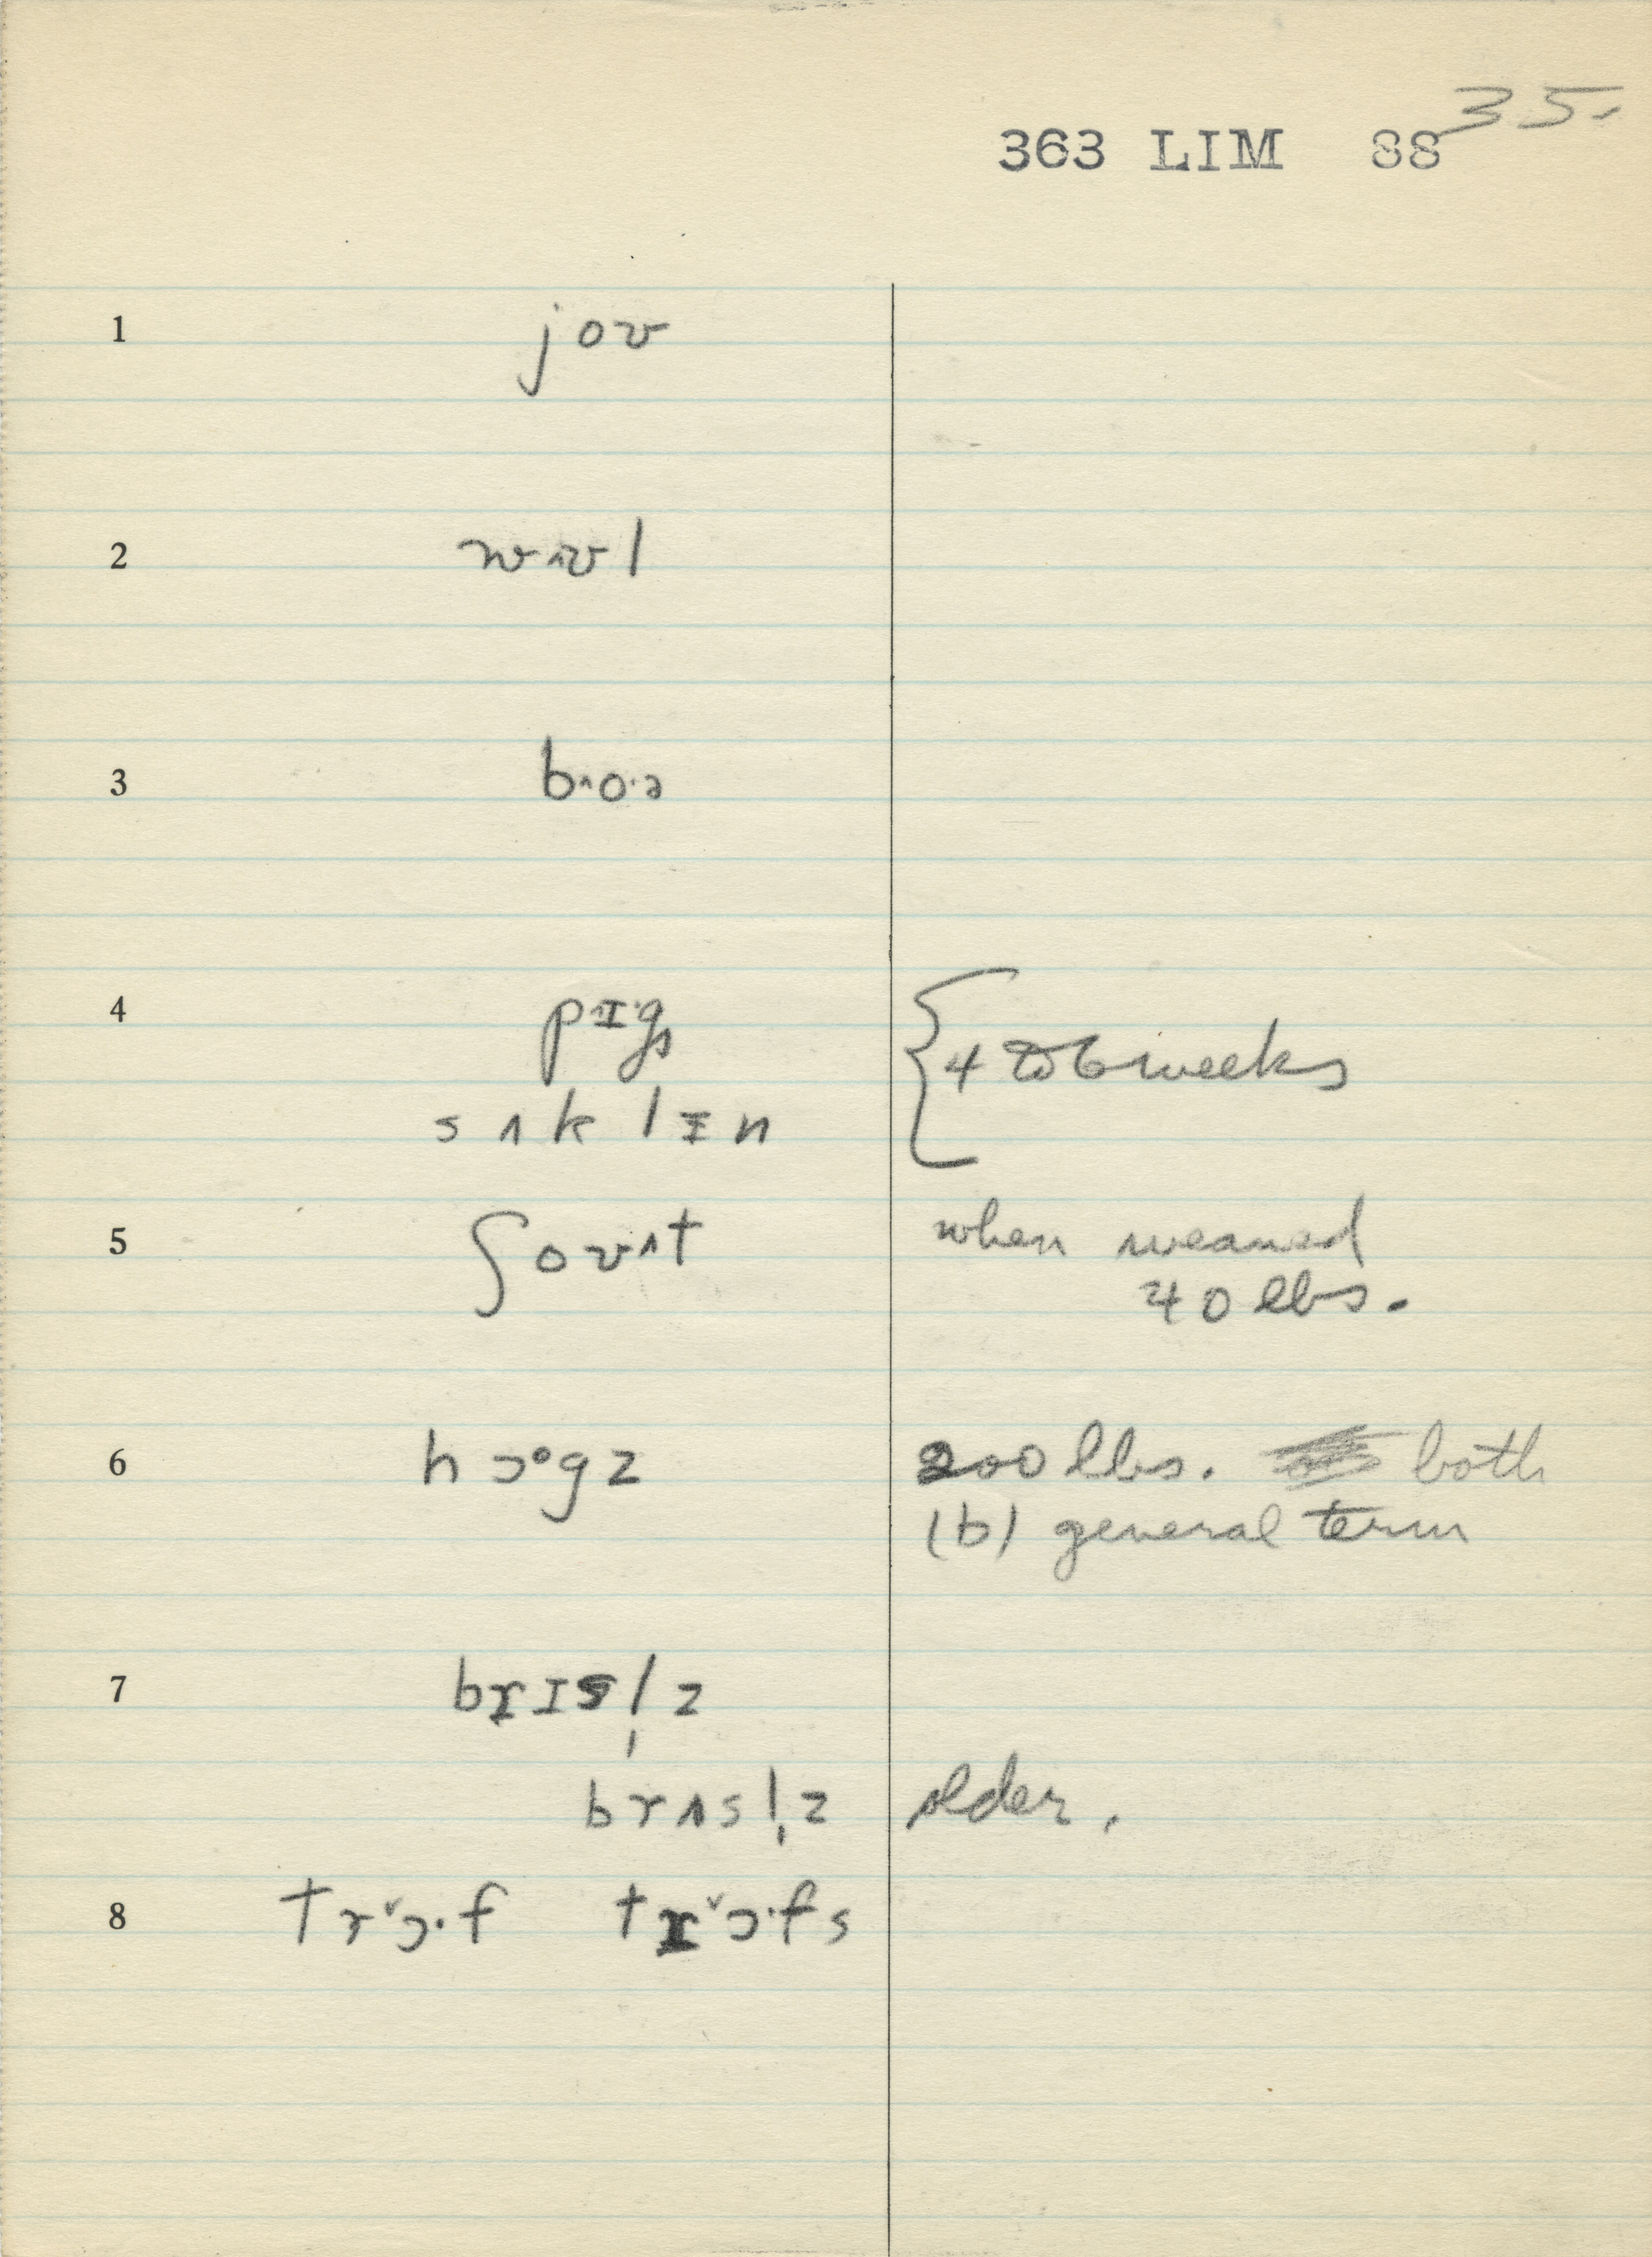 35.
363 LIM 88
1 joʊ
2 wʊl
3 b˄o·ə
4 pɪ·gs
sʌklɪn
{4 to 6 weeks
5 ʃoʊʌt when weaned
40 lbs.
6 hɔ°gz 200 lbs. both
(b) general term
7 brɪsl̩z
brʌsl̩z older.
8 trˇɔ·f trˇɔ·fs